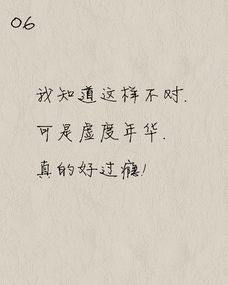 06
我知道这样不对.
可是虚度年华.
真的好过瘾!